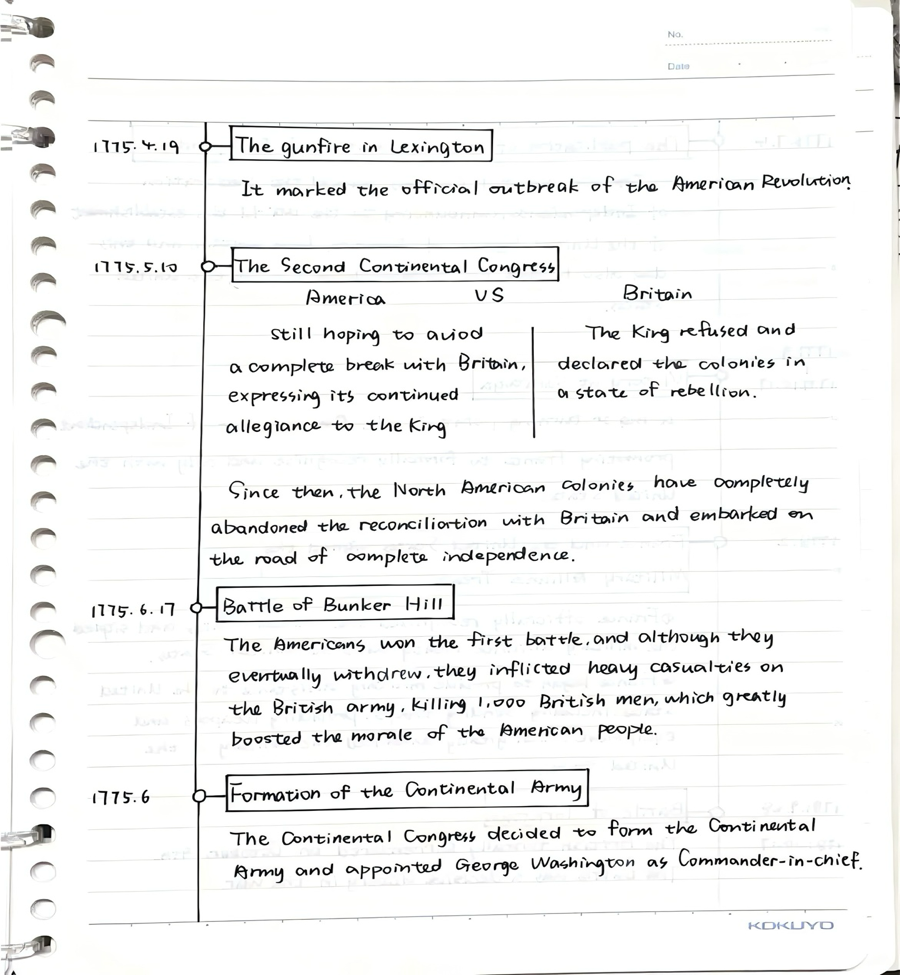 No.
Date
1775.4.19 The gunfire in Lexington
It marked the official outbreak of the American Revolution.
1775.5.10 The Second Continental Congress
America VS Britain
still hoping to aviod
a complete break with Britain,
expressing its continued
allegiance to the King
The King refused and
declared the colonies in
a state of rebellion.
Since then, the North American colonies have completely
abandoned the reconciliation with Britain and embarked on
the road of complete independence.
1775.6.17 Battle of Bunker Hill
The Americans won the first battle, and although they
eventually withdrew, they inflicted heavy casualties on
the British army, killing 1,000 British men, which greatly
boosted the morale of the American people.
1775.6 Formation of the Continental Army
The Continental Congress decided to form the Continental
Army and appointed George Washington as Commander-in-chief.
KOKUYO